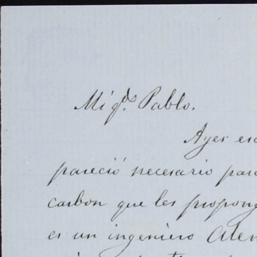 Mi qdo. Pablo.
Ayer es
pareció necesario par
carbon que les propong
es un ingeniero Ale